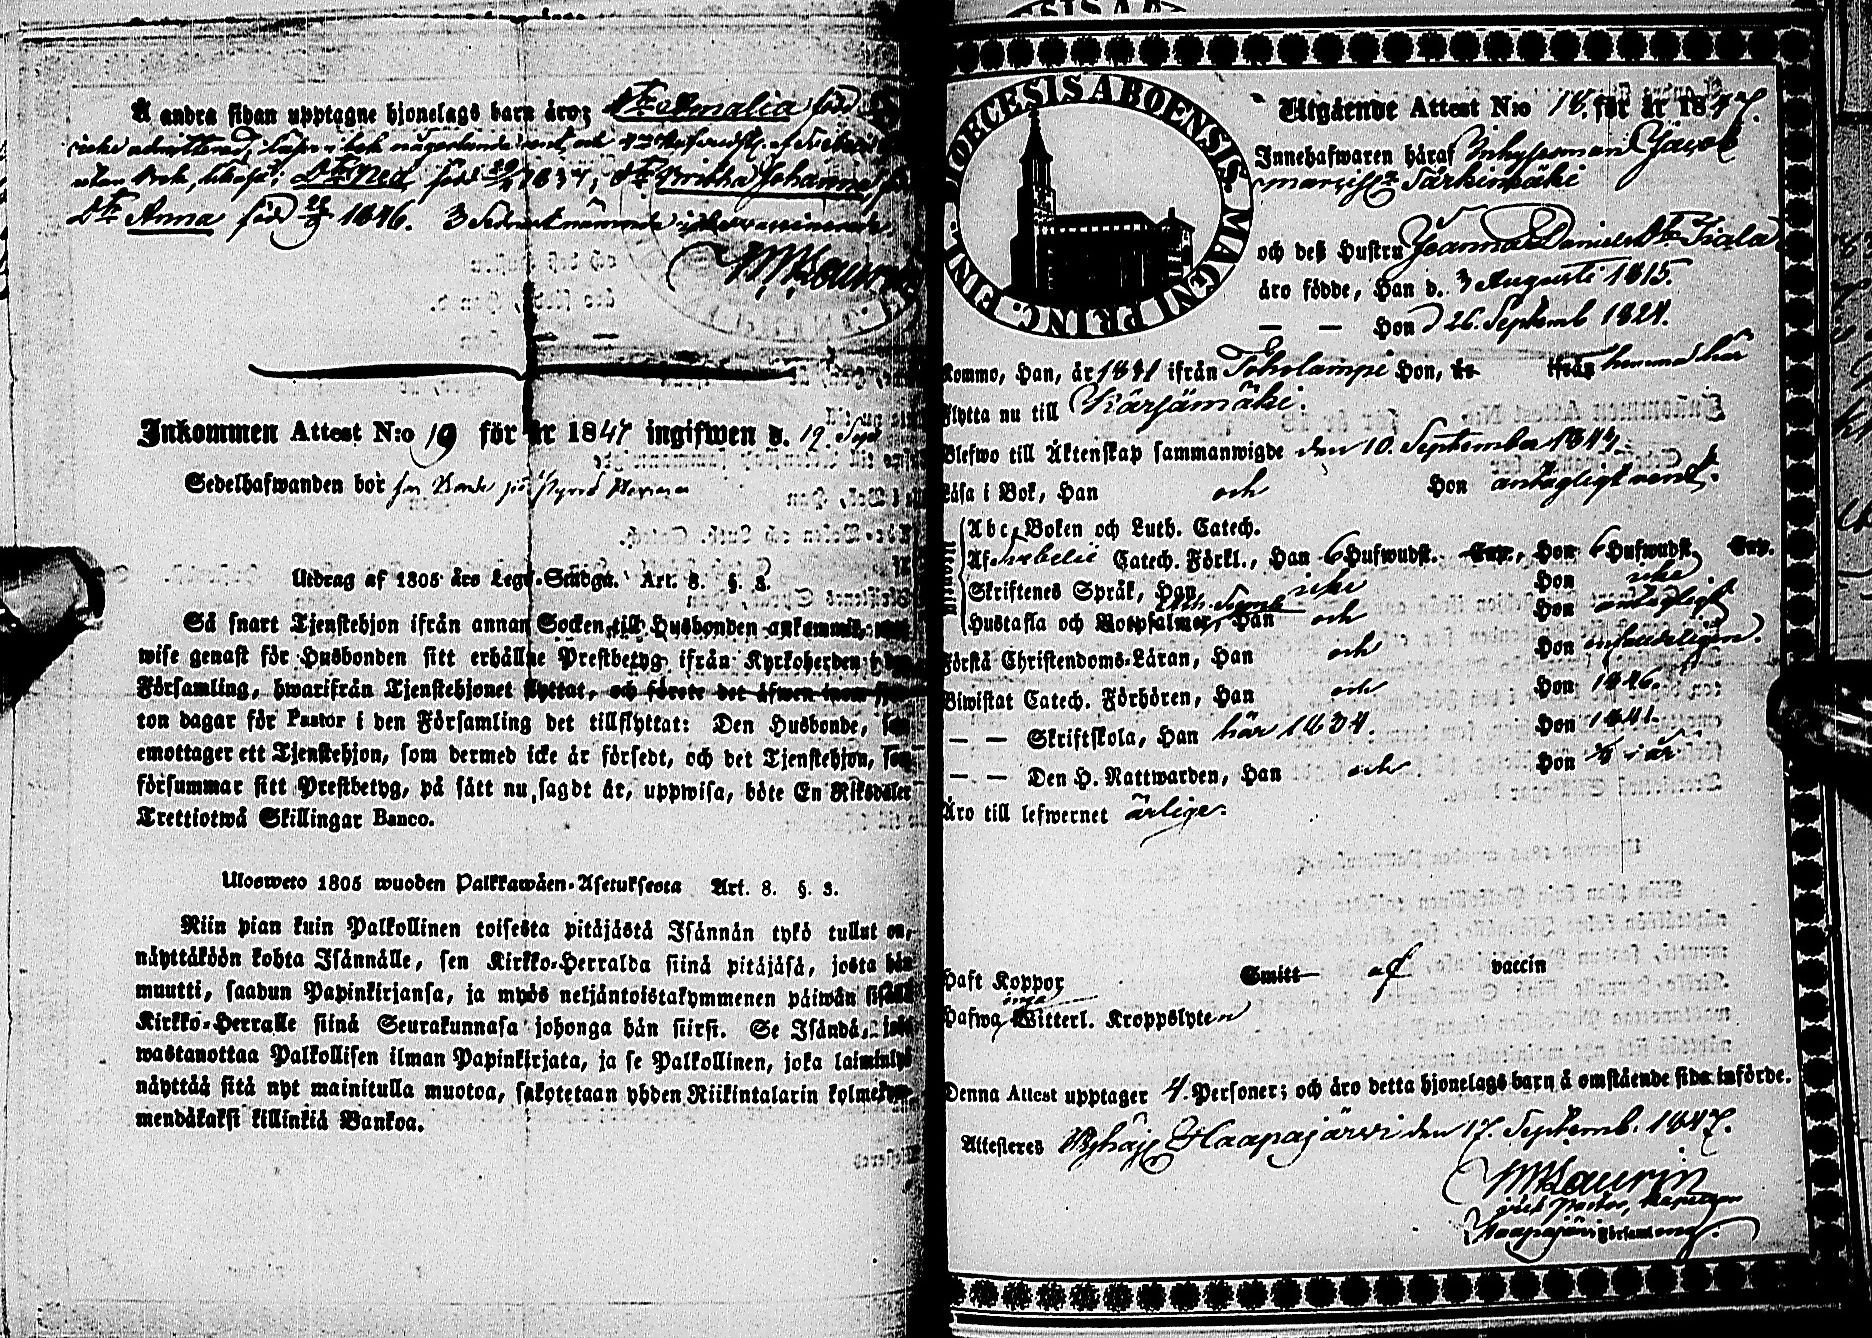 Å andra sidan upptagne hjonelags barn äro; Dtr Amalia född
Dtr Anna född 1846. 3 Sednast nämnde icke vaccinerade
Inkommen Attest N:o 19 för år 1847 ingifwen d. 19 Sept
Sedelhafwanden bor
Utdrag af 1805 års Lego-Stadga. Art. 8. §. 3.
Så snart Tjenstehjon ifrån annan Socken till Husbonden ankommit,
wise genast för Husbonden sitt erhållne Prestbetyg ifrån Kyrkoherden i den
Församling, hwarifrån Tjenstehjonet flyttat, och förete det äfwen inom
ton dagar för Pastor i den Församling det tillflyttat: Den Husbonde,
emottager ett Tjenstehjon, som dermed icke är försedt, och det Tjenstehjon, som
försummar sitt Prestbetyg, på sätt nu sagdt är, uppwisa, böte En Riksdaler
Trettiotwå Skillingar Banco.
Ulosweto 1805 wuoden Palkkawäen-Asetuksesta Art. 8. §. 3.
Niin pian kuin Palkollinen toisesta pitäjästä Isännän tykö tullut on,
näyttäköön kohta Isännälle, sen Kirkko-Herralda siinä pitäjäsä, josta hän
muutti, saadun Papinkirjansa, ja myös neljäntoistakymmenen päiwän sisällä
Kirkko-Herralle siinä Seurakunnasa johonga hän siirsi. Se Isändä, joka
wastanottaa Palkollisen ilman Papinkirjata, ja se Palkollinen, joka laiminlyö
näyttää sitä nyt mainitulla muotoa, sakotetaan yhden Riikintalarin kolmekym-
mendäkaksi killinkiä Bankoa.
DIOECESIS ABOENSIS MAGNI PRINC. FINL.
Utgående Attest N:o 18 för år 1847.
Innehafwaren häraf Inhysesman Jacob
Särkimäki
och deß Hustru Joanna Daniels Dtr Fiala
äro födde, Han d. 3 Augusti 1815.
— — Hon d 26. Septemb 1824.
Kommo, Han, år 1841 ifrån Toholampi Hon, år ifrån hemma här
Flytta nu till Kärsämäki.
Blefwo till Äktenskap sammanwigde den 10. September 1843.
Läsa i Bok, Han och Hon antagligt rent.
Abc-Boken och Luth. Catech.
Af Svebelii Catech. Förkl., Han 6 Hufwudst. Hon 6 Hufwudst.
Skriftenes Språk, Han icke Hon icke
Hustafla och Botpsalmer, Han och Hon antagligt
Förstå Christendoms-Läran, Han och Hon enfaldeligen.
Biwistat Catech. Förhören, Han och Hon 1846.
— — Skriftskola, Han här 1834. Hon 1841.
— — Den H. Nattwarden, Han och Hon i år
Äro till lefwernet ärlige.
Haft Koppor Smitt af vaccin
Hafwa inga Witterl. Kroppslyten
Denna Attest upptager 4. Personer; och äro detta hjonelags barn å omstående sida införde.
Attesteres Pyhäj. Haapajärvi den 17. Septemb. 1847.